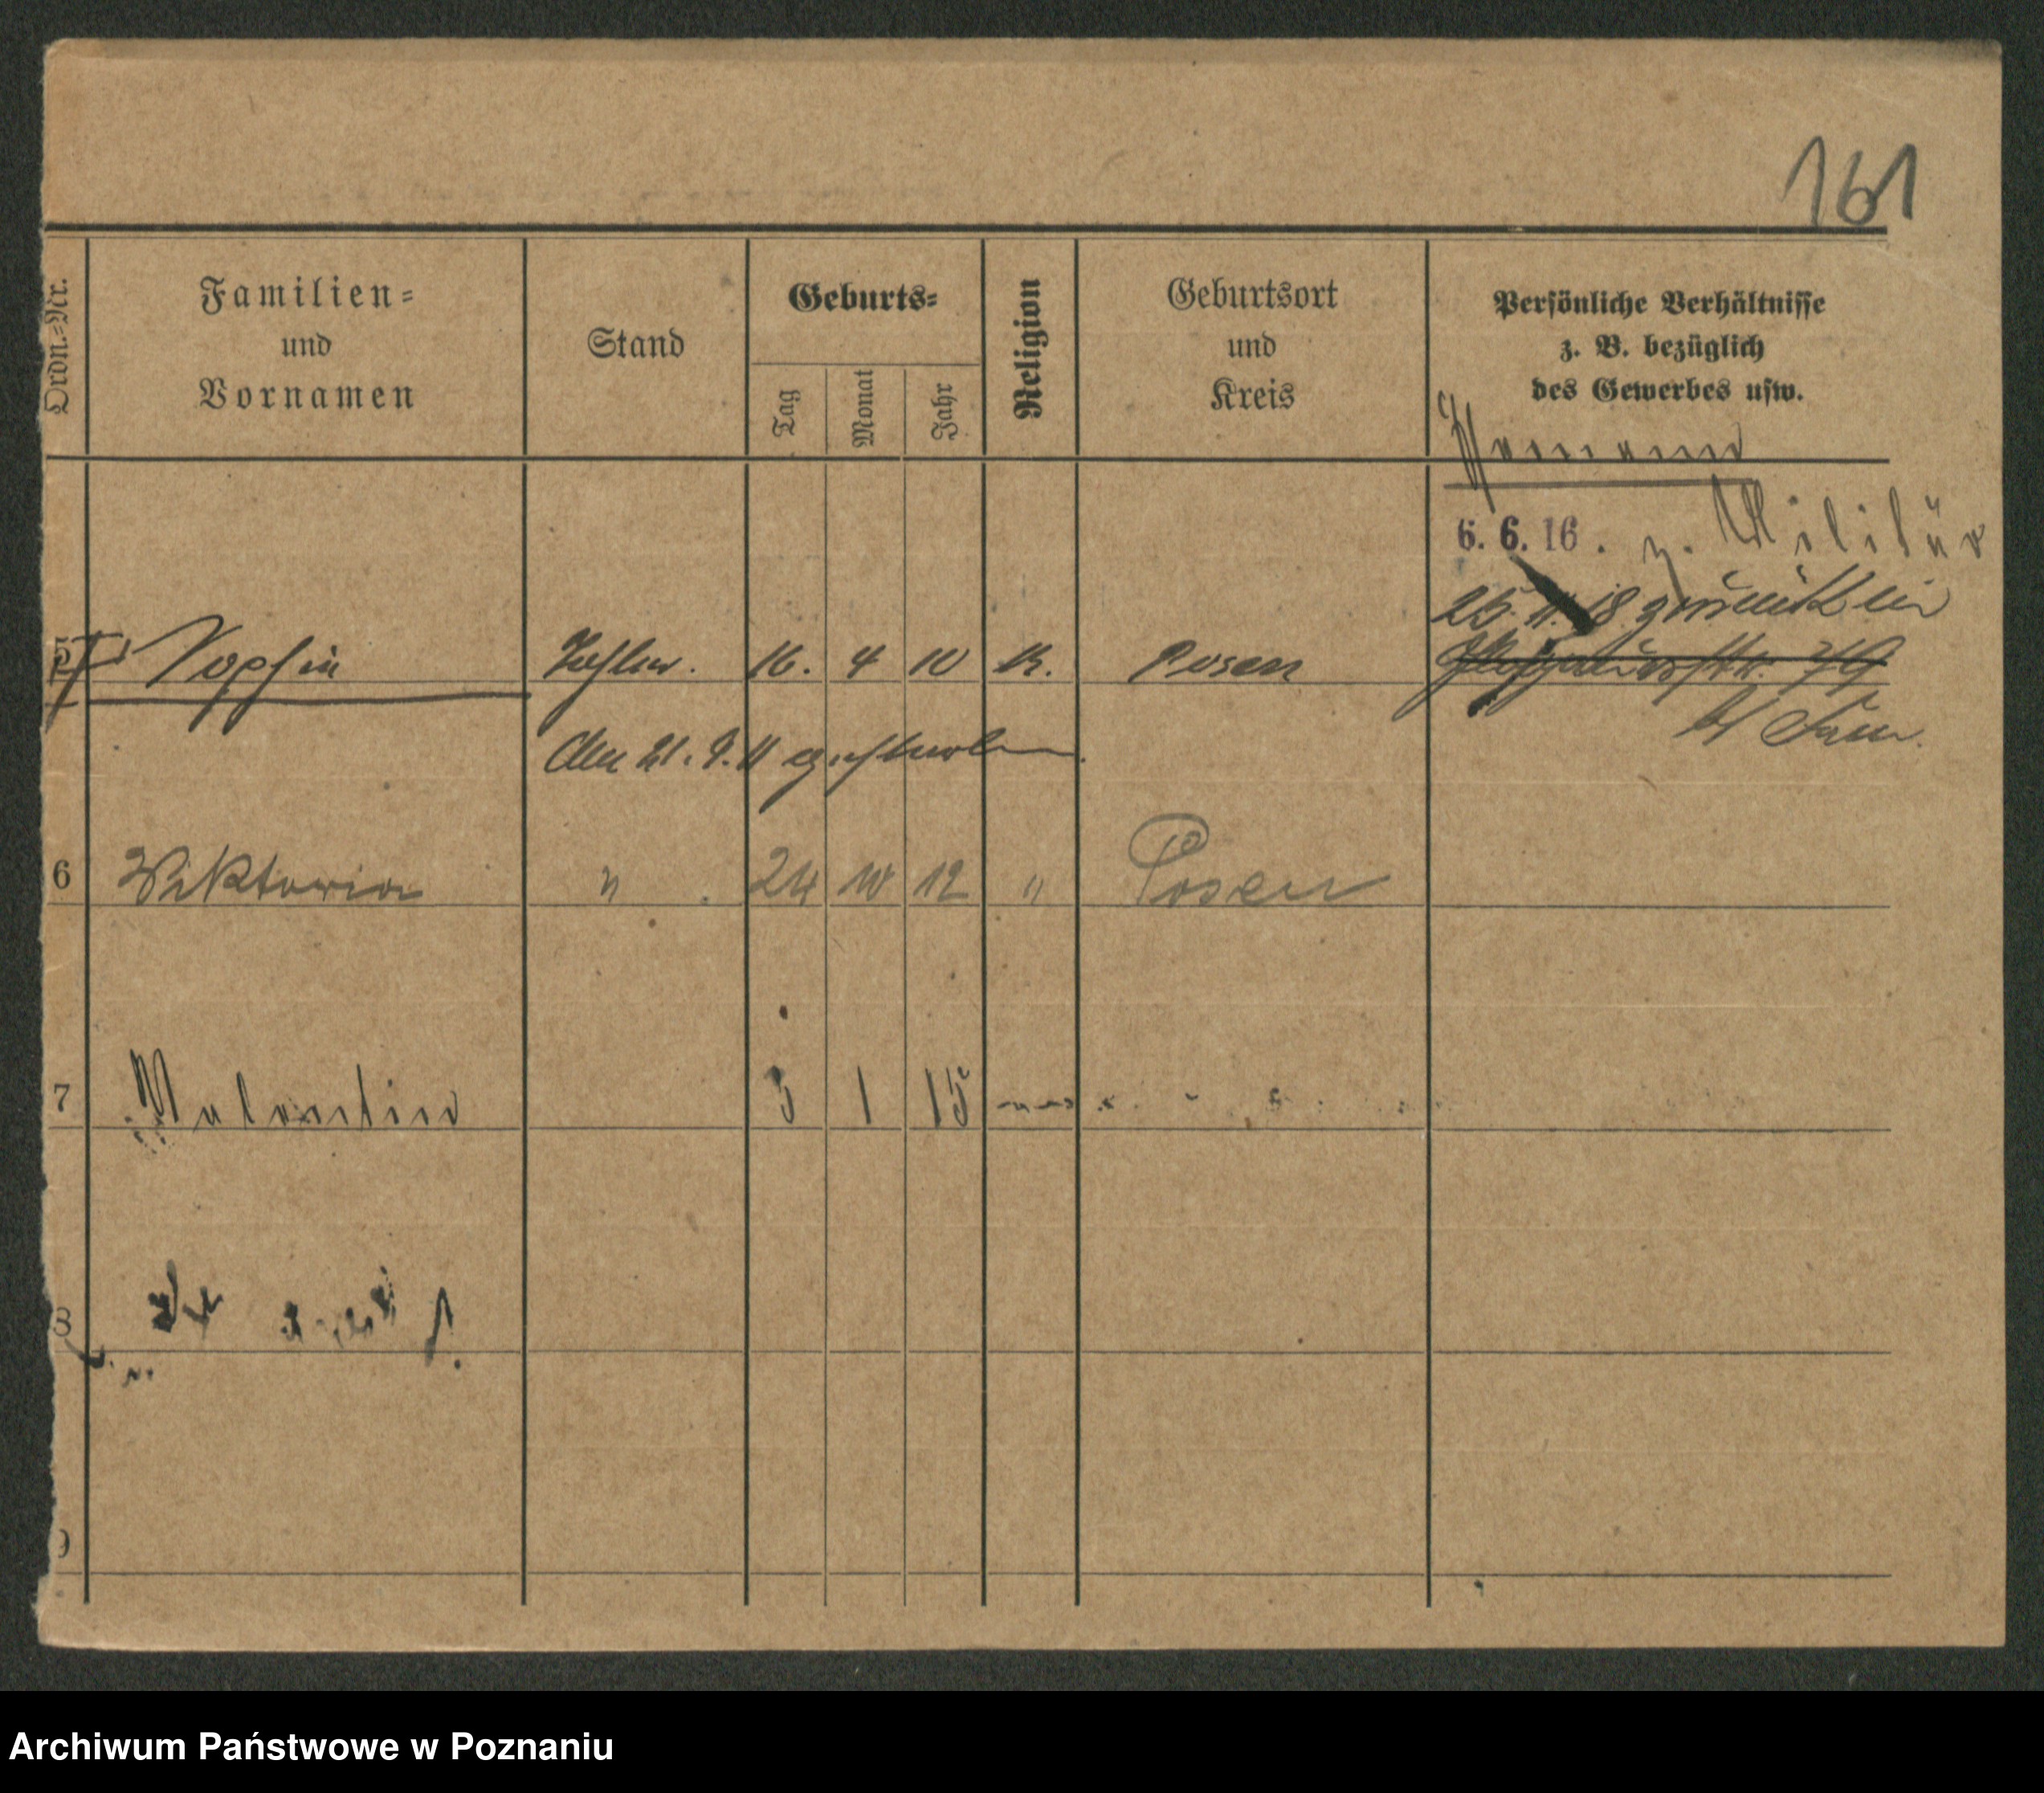 161
Ordn.=Nr.
Familien=
und
Vornamen
Stand
Geburts=
Tag
Monat
Jahr
Religion
Geburtsort
und
Kreis
Persönliche Verhältnisse
z. B. bezüglich
des Gewerbes usw.
6. 6. 16. z. Militär
25. 11. 18 zurück in
79
5 Sophie Tochter. 16. 4 10 K. Posen
den 21. 9. 11 gestorben.
6 Wiktoria " 24 10 12 " Posen
7 Valentin 5 1 15
8
9
Archiwum Państwowe w Poznaniu